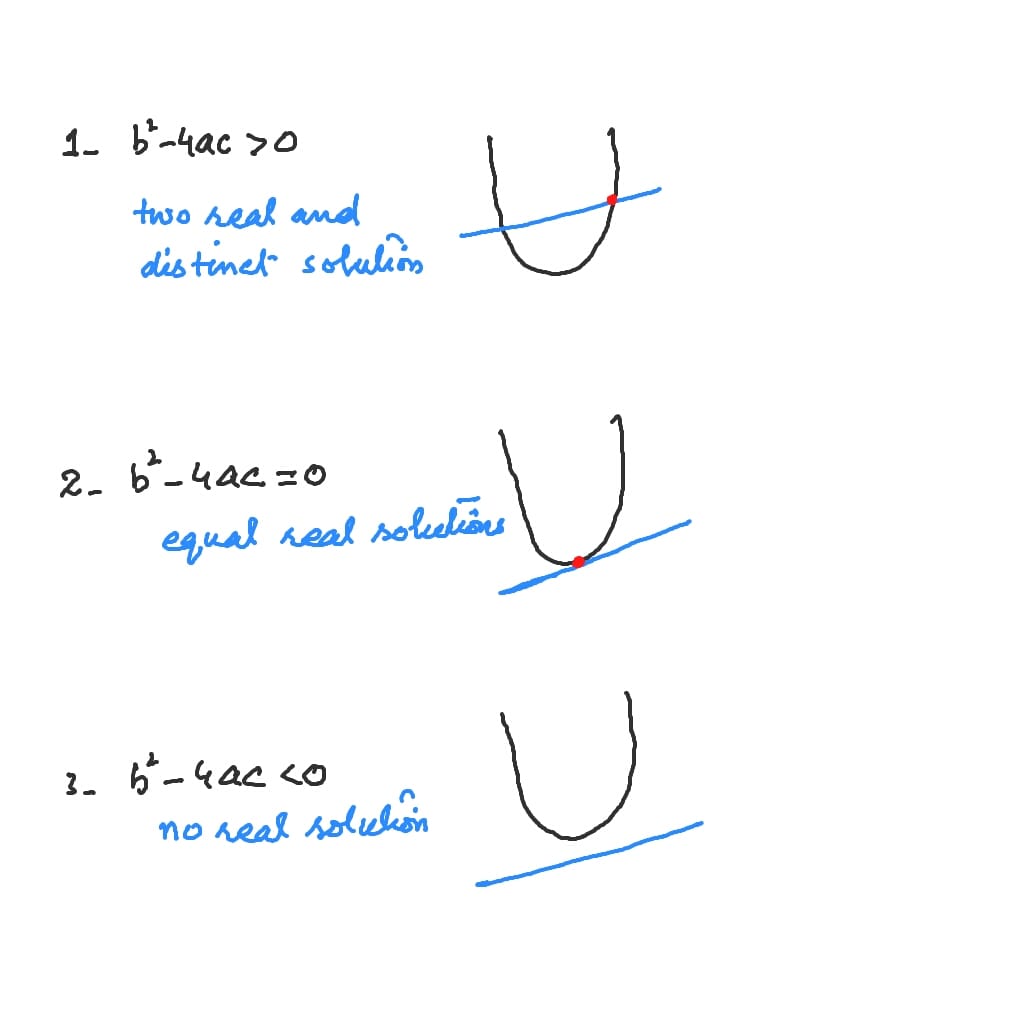 1- b²-4ac >0
two real and
distinct solution
2- b²-4ac =0
equal real solutions
3- b²-4ac <0
no real solution